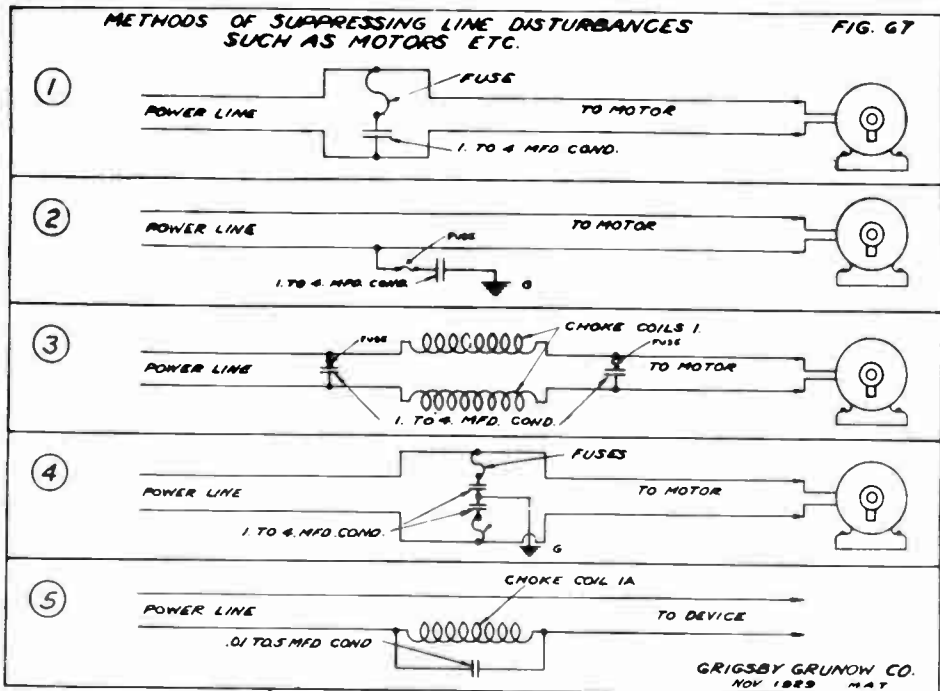 METHODS OF SUPPRESSING LINE DISTURBANCES
SUCH AS MOTORS ETC.
FIG. 67
1
FUSE
POWER LINE
TO MOTOR
1. TO 4 MFD COND.
2
POWER LINE
TO MOTOR
FUSE
1. TO 4. MFD. COND.
G
3
CHOKE COILS 1.
FUSE
FUSE
POWER LINE
TO MOTOR
1. TO 4. MFD. COND.
4
FUSES
POWER LINE
TO MOTOR
1. TO 4. MFD. COND.
G
5
CHOKE COIL 1A
POWER LINE
TO DEVICE
.01 TO.5 MFD COND
GRIGSBY GRUNOW CO.
NOV 1929 M.A.T